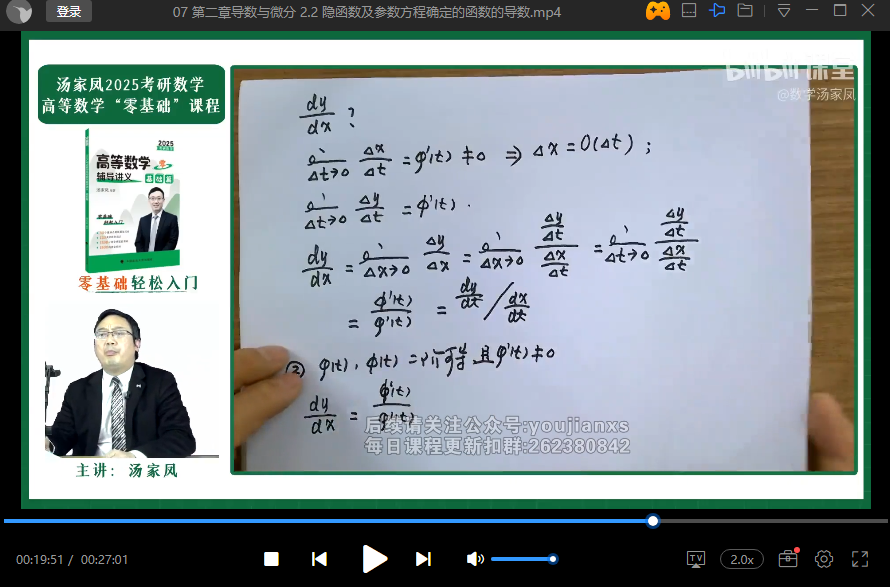 登录
07 第二章导数与微分 2.2 隐函数及参数方程确定的函数的导数.mp4
汤家凤2025考研数学
高等数学“零基础”课程
2025
高等数学
辅导讲义
基础篇
零基础
轻松入门
零基础轻松入门
主讲：汤家凤
bilibili 课堂
@数学汤家凤
dy/dx ?
Δt→0 Δx/Δt = φ'(t) ≠ 0 ⇒ Δx = O(Δt) ;
Δt→0 Δy/Δt = ψ'(t) .
dy/dx = Δx→0 Δy/Δx = Δx→0 (Δy/Δt)/(Δx/Δt) = Δt→0 (Δy/Δt)/(Δx/Δt)
= ψ'(t)/φ'(t) = dy/dt / dx/dt
② φ(t), ψ(t) 二阶可导 且 φ'(t) ≠ 0
dy/dx = ψ'(t)/φ'(t)
后续请关注公众号:youjianxs
每日课程更新扣群:262380842
00:19:51 / 00:27:01
TV
2.0x